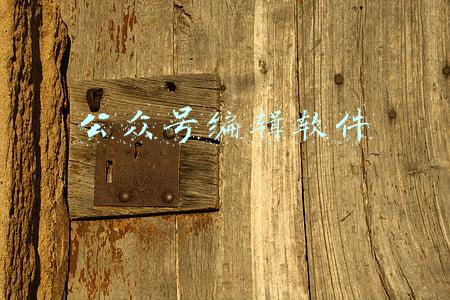 公众号编辑软件